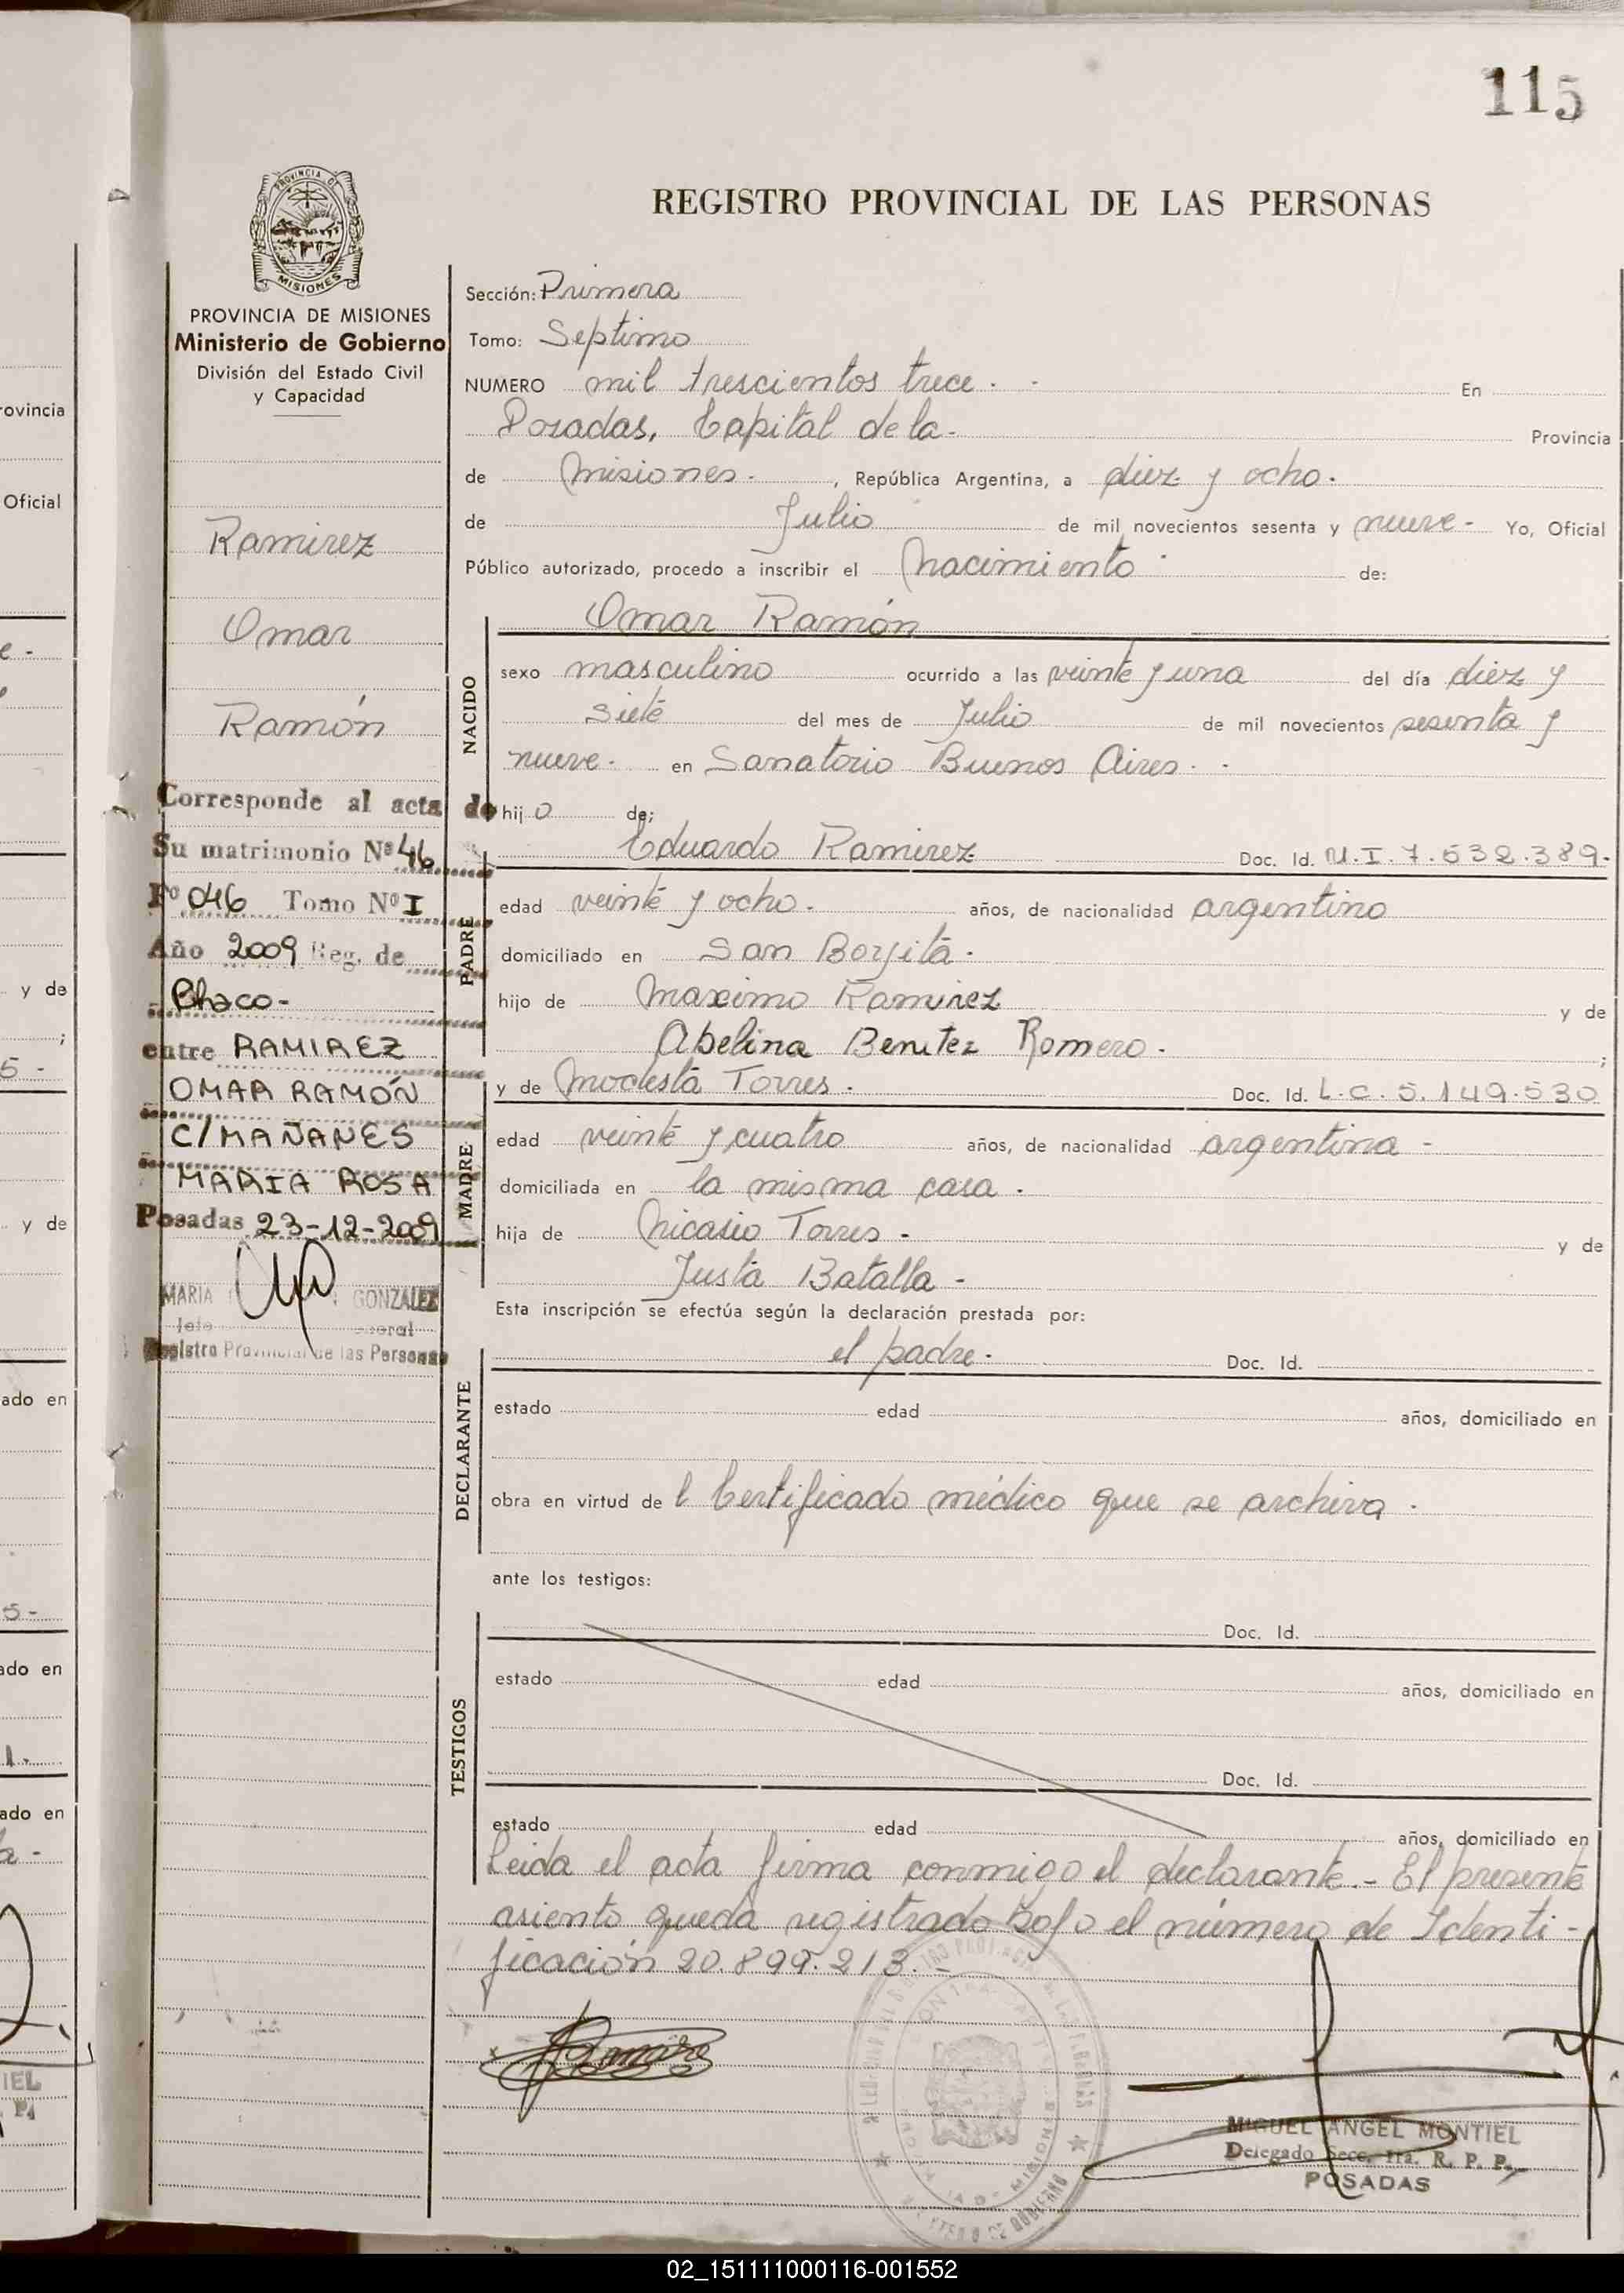 115
PROVINCIA DE
MISIONES
REGISTRO PROVINCIAL DE LAS PERSONAS
PROVINCIA DE MISIONES
Ministerio de Gobierno
División del Estado Civil
y Capacidad
Ramirez
Omar
Ramón
Corresponde al acta de
Su matrimonio Nº 46
Fº 046 Tomo Nº I
Año 2009 Reg. de
Chaco-
entre RAMIREZ
OMAR RAMÓN
C/MAÑANES
MARIA ROSA
Posadas 23-12-2009
MARIA GONZALEZ
Registro Provincial de las Personas
Sección: Primera
Tomo: Septimo
NUMERO mil trescientos trece. - En
Posadas, Capital de la- Provincia
de Misiones. , República Argentina, a diez y ocho.
de Julio de mil novecientos sesenta y nueve- Yo, Oficial
Público autorizado, procedo a inscribir el Nacimiento de:
Omar Ramón
NACIDO
sexo masculino ocurrido a las veinte y una del día diez y
siete del mes de Julio de mil novecientos sesenta y
nueve. en Sanatorio Buenos Aires. .
hijo de;
Eduardo Ramirez Doc. Id. M.I.7.532.389.
PADRE
edad veinte y ocho. años, de nacionalidad argentino
domiciliado en San Borjita.
hijo de Maximo Ramirez y de
Abelina Benitez Romero. ;
y de Modesta Torres. Doc. Id. L.C.5.149.530
MADRE
edad veinte y cuatro años, de nacionalidad argentina -
domiciliada en la misma casa.
hija de Nicasio Torres. y de
Justa Batalla -
Esta inscripción se efectúa según la declaración prestada por:
el padre. Doc. Id.
DECLARANTE
estado edad años, domiciliado en
obra en virtud de l Certificado médico que se archiva.
ante los testigos:
TESTIGOS
Doc. Id.
estado edad años, domiciliado en
Doc. Id.
estado edad años, domiciliado en
Leida el acta firma conmigo el declarante.- El presente
asiento queda registrado bajo el número de Identi-
ficación 20.899.213.-
MIGUEL ANGEL MONTIEL
Delegado Secc. 1ra. R. P. P.
POSADAS
02_151111000116-001552